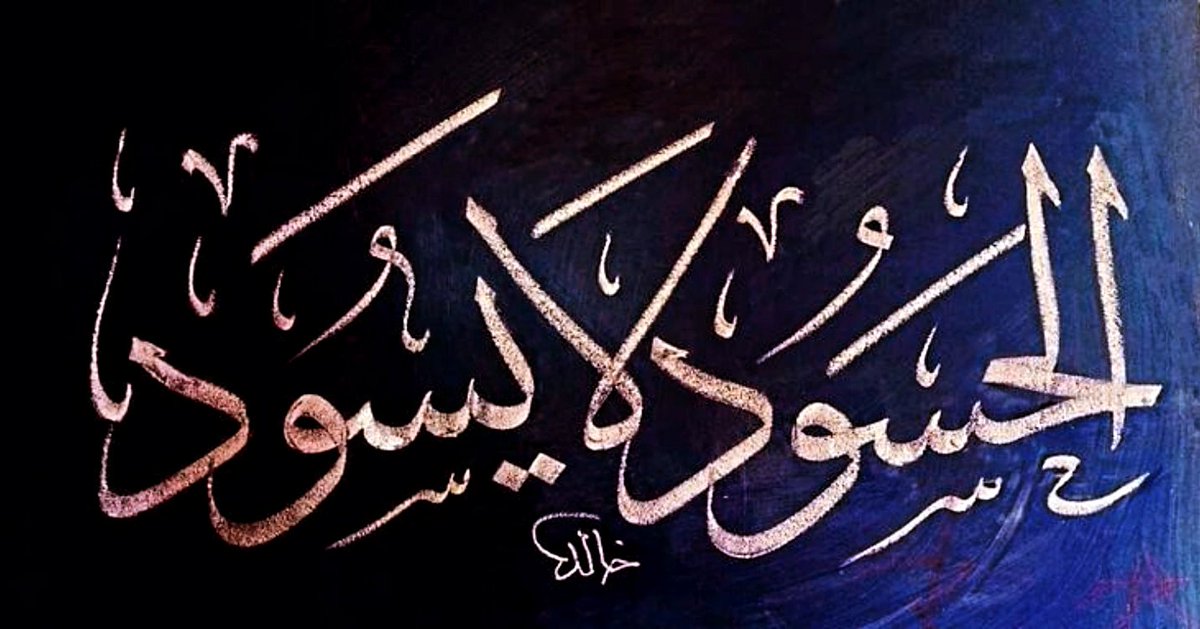 الحسود لا يسود
خالد